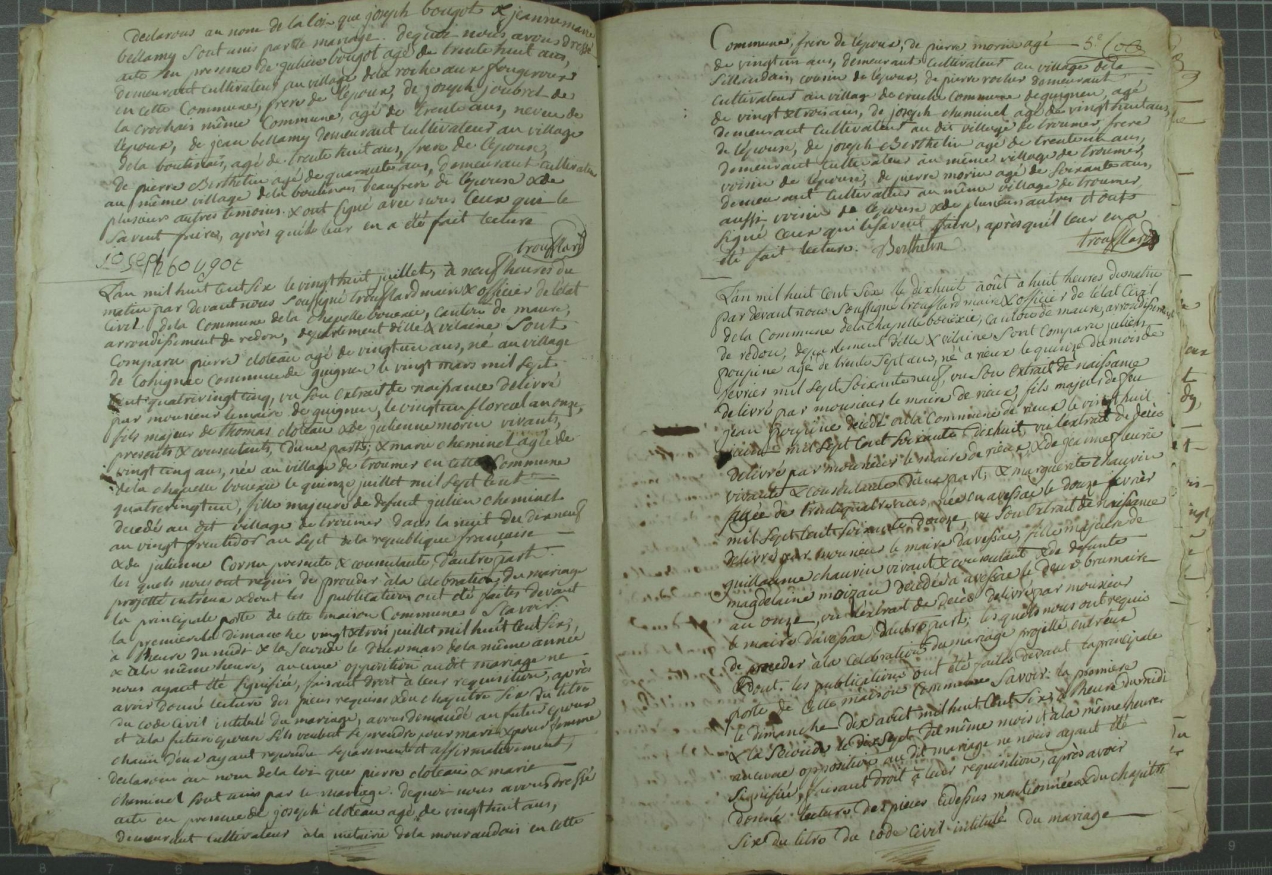 Declarons au nom de la loi que joseph bougot & jeanne marie
bellamy sont unis par le mariage. dequoi nous avons dressé
acte en presence de julien bougot agé de trente huit ans,
demeurant cultivateur au village de la roche aux fougerous
en cette Commune, frere de l'epoux, de joseph joubrel de
la crochais même Commune, agé de trente ans, neveu de
l'epoux, de jean bellamy demeurant cultivateur au village
de la boutinais, agé de trente huit ans, frere de l'epouse,
de pierre Berthelin agé de quarante ans, demeurant cultivateur
au même village de la boutinais beaufrere de l'epouse & de
plusieurs autres temoins. & ont signé avec nous ceux qui le
savent faire, après qu'il leur en a été fait lecture
trouffland
joseph bougot
L'an mil huit cent six le vingt huit juillet, à neuf heures du
matin par devant nous soussigné trouffland maire & officier de l'etat
civil de la Commune de la chapelle bouexic, canton de maure,
arrondissement de redon, departement d'ille & vilaine Sont
comparu pierre cloteau agé de vingt un ans, né au village
de lohignac commune de guignen le vingt mars mil sept
cent quatre vingt cinq, vu son extrait de naissance delivré
par monsieur le maire de guignen, le vingt un floreal an onze,
fils majeur de thomas cloteau & de julienne morin vivants,
presents & consentants, d'une part; & marie cheminel agée de
vingt cinq ans, née au village de troumer en cette Commune
de la chapelle bouexic le quinze juillet mil sept cent
quatre vingt un, fille majeure de defunt julien cheminel
decedé au dit village de troumer dans la nuit du dix neuf
au vingt fructidor an sept de la republique française
& de julienne Cornu presente & consentante, d'autre part.
les quels nous ont requis de proceder à la celebration du mariage
projetté entreux & dont les publications ont été faites devant
la principale porte de cette maison Commune Savoir
la premiere le dimanche vingt & trois juillet mil huit cent six,
à l'heure du midi & la seconde le deux mars de la même année
& à la même heure, aucune opposition audit mariage ne
nous ayant été signifiée, faisant droit à leur requisition, après
avoir donné lecture des pieces requises & du chapitre six du libro
du code civil intitulé du mariage, avons demandé au futur epoux
et à la future epouse s'ils veulent se prendre pour mari & pour femme
chacun deux ayant repondu separement et affirmativement,
declarons au nom de la loi que pierre cloteau & marie
cheminel sont unis par le mariage. dequoi nous avons dressé
acte en presence de joseph cloteau agé de vingt huit ans,
demeurant cultivateur à la metairie de la mouraudais en cette
Commune, frere de l'epoux, de pierre morin agé
5e Cote
de vingt un ans, demeurant cultivateur au village de la
cousin de l'epoux, de pierre rocher demeurant
cultivateur au village de commune de guignen, agé
de vingt & trois ans, de joseph cheminel agé de vingt huit ans
demeurant Cultivateur au dit village de troumer, frere
de l'epouse, de joseph Berthelin agé de trente huit ans,
demeurant cultivateur au même village de troumer,
voisin de l'epouse, de pierre morin agé de soixante ans,
demeurant cultivateur au même village de troumer
aussi voisin de l'epouse & de plusieurs autres & ont
signé ceux qui le savent faire, après qu'il leur en a
été fait lecture. Berthelin trouffland
L'an mil huit cent six le dix huit août à huit heures du matin
par devant nous soussigné trouffland maire & officier de l'etat civil
de la Commune de la chapelle bouexic, canton de maure, arrondissement
de redon, departement d'ille & vilaine Sont comparu julien
poupine agé de trente sept ans, né à rieux le quinze du mois de
fevrier mil sept soixante neuf, vu son extrait de naissance
delivré par monsieur le maire de rieux, fils majeur de feu
jean poupine decedé en la Commune de rieux le vingt huit
mil sept cent soixante dix huit, vu l'extrait de deces
delivré par monsieur le maire de rieux, & de
vivante & consentante d'une part; & marguerite chauvin
agée de trente née en avessac le douze fevrier
mil sept cent soixante douze, vu son extrait de naissance
delivré par monsieur le maire d'avessac, fille majeure de
guillaume chauvin vivant & consentant & de defunte
magdelaine decedée à avessac le deux brumaire
an onze, vu l'extrait de deces delivré par monsieur
le maire d'avessac, d'autre part; lesquels nous ont requis
de proceder à la celebration du mariage projetté entreux
& dont les publications ont été faites devant la principale
porte de cette maison Commune Savoir la premiere
le dimanche dix aout mil huit cent six, à l'heure du midi
& la seconde le dix sept dit même mois et à la même heure
aucune opposition audit mariage ne nous ayant été
signifiée, faisant droit à leur requisition, après avoir
donné lecture des pieces cidessus mentionnées & du chapitre
six du libro du code civil intitulé du mariage